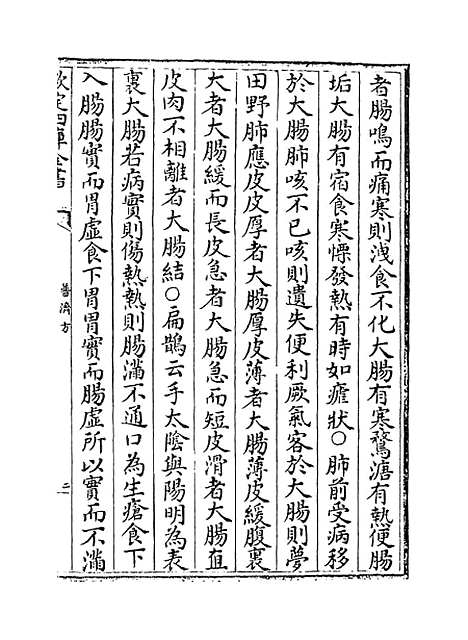 者腸鳴而痛寒則洩食不化大腸有寒鶩溏有熱便腸
垢大腸有宿食寒慄發熱有時如瘧狀○肺前受病移
於大腸肺咳不已咳則遺失便利厥氣客於大腸則夢
田野肺應皮皮厚者大腸厚皮薄者大腸薄皮緩腹裏
大者大腸緩而長皮急者大腸急而短皮滑者大腸直
皮肉不相離者大腸結○扁鵲云手太陰與陽明為表
裏大腸若病實則傷熱熱則腸滿不通口為生瘡食下
入腸腸實而胃虛食下胃胃實而腸虛所以實而不滿
欽定四庫全書
普濟方
二